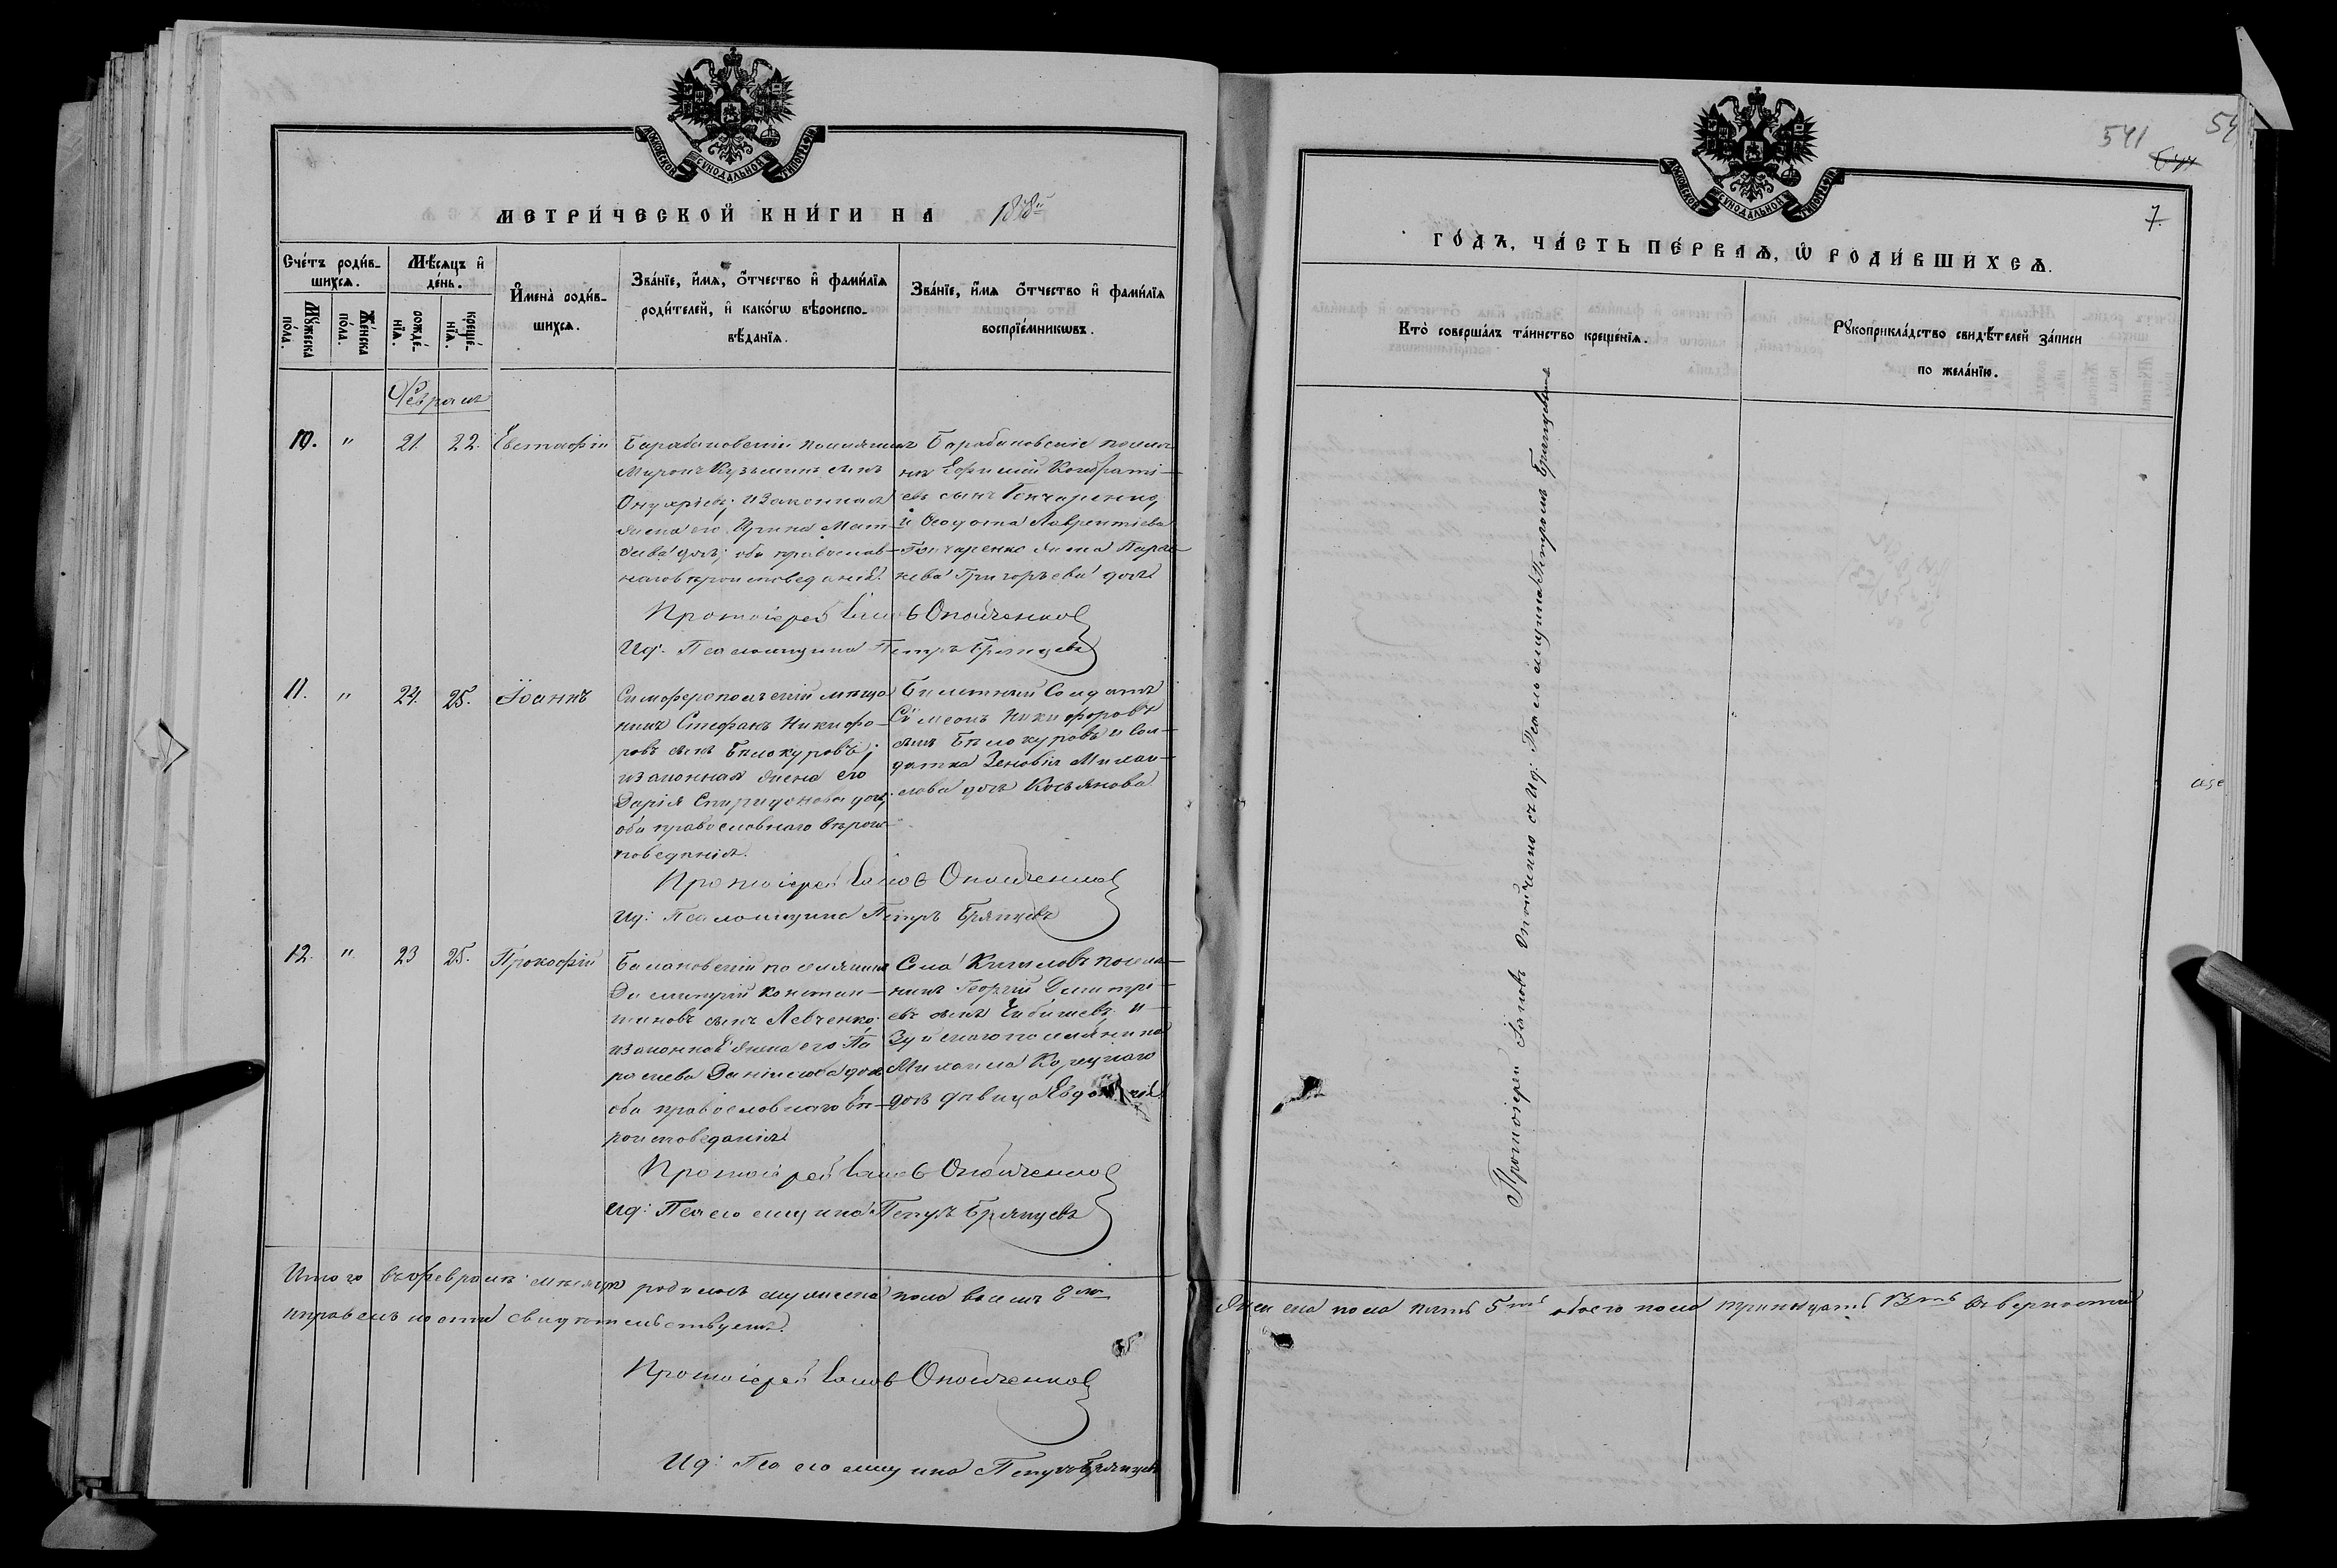 МОСКОВСКОЙ СѴНОДАЛЬНОЙ ТИПОГРАФІИ
МЕТРИ́ЧЕСКОЙ КНИ́ГИ НА
Сче́тъ роди́в-
шихсѧ.
Мѣ́сѧцъ и҆
де́нь.
Мꙋ́жеска
по́ла.
Же́нска
по́ла.
рожде́-
нїѧ.
креще́-
нїѧ.
И҆мена̀ роди́в-
шихсѧ.
Зва́нїе, и҆́мѧ, ѻ҆́тчество и҆ фамѝлїѧ
роди́телей, и҆ како́гѡ вѣроиспо-
вѣ́данїѧ.
Зва́нїе, и҆́мѧ ѻ҆́тчество и҆ фамѝлїѧ
воспрїе́мникѡвъ.
Февраль
10. " 21. 22. Евстафій
Барабановскій поселянинъ
Миронъ Кузьминъ сынъ
Онуфріевъ; и законная
жена его Ирина Мат-
ѳеева дочь; оба православ-
наго вѣроисповеданія.
Барабановскіе поселя-
нинъ Ефимій Кондраті-
евъ сынъ Гончаренко,
и Ѳедота Лаврентіева
Гончаренко жена Парас-
кева Григорьева дочь
Протоіерей Іаковъ Опойченко
Ид: Псаломщика Петръ Брянцевъ
11. " 24. 25. Іоаннъ
Симферопольскій мѣща
нинъ Стефанъ Никифо-
ровъ сынъ Бѣлокуровъ;
и законная жена его
Дарія Спиридонова дочь,
оба православнаго вѣроис-
поведанія.
Билетный Солдатъ
Сѵмеонъ Никифоровъ
сынъ Бѣлокуровъ и Сол-
датка Зеновія Михаи-
лова дочь Косьянова
Протоіерей Іаковъ Опойченко
Ид: Псаломщика Петръ Брянцевъ
12. " 23 25. Прокофій
поселянинъ
Димитрій Констан-
тиновъ сынъ Левченко
и законная жена его Па
раскева Даніилова дочь
оба православнаго вѣ-
роисповеданія
Села поселя-
нинъ Георгій Димитрі-
евъ сынъ и
Зуйскаго поселянина
Михаила
дочь дѣвица Евдокія
Протоіерей Іаковъ Опойченко
Ид: Псаломщика Петръ Брянцевъ
Итого въ февралѣ мѣсяцѣ родилось мужеска пола восемь 8мь
Протоіерей Іаковъ Опойченко
Ид: Псаломщика Петръ Брянцевъ
541
7.
МОСКОВСКОЙ СѴНОДАЛЬНОЙ ТИПОГРАФІИ
ГО́ДЪ, ЧА́СТЬ ПЕ́РВАѦ, Ѡ҆ РОДИ́ВШИХСѦ.
Кто̀ соверша́лъ та́инство креще́нїѧ.
Рꙋкоприкла́дство свидѣ́телей за́писи
по жела́нїю.
Протоіерей Іаковъ Опойченко съ Ид: Псаломщика Петромъ Брянцевымъ
женска пола пять 5ть обоего пола тринадцать 13ть въ верности
и правильности свидѣтельствуемъ.